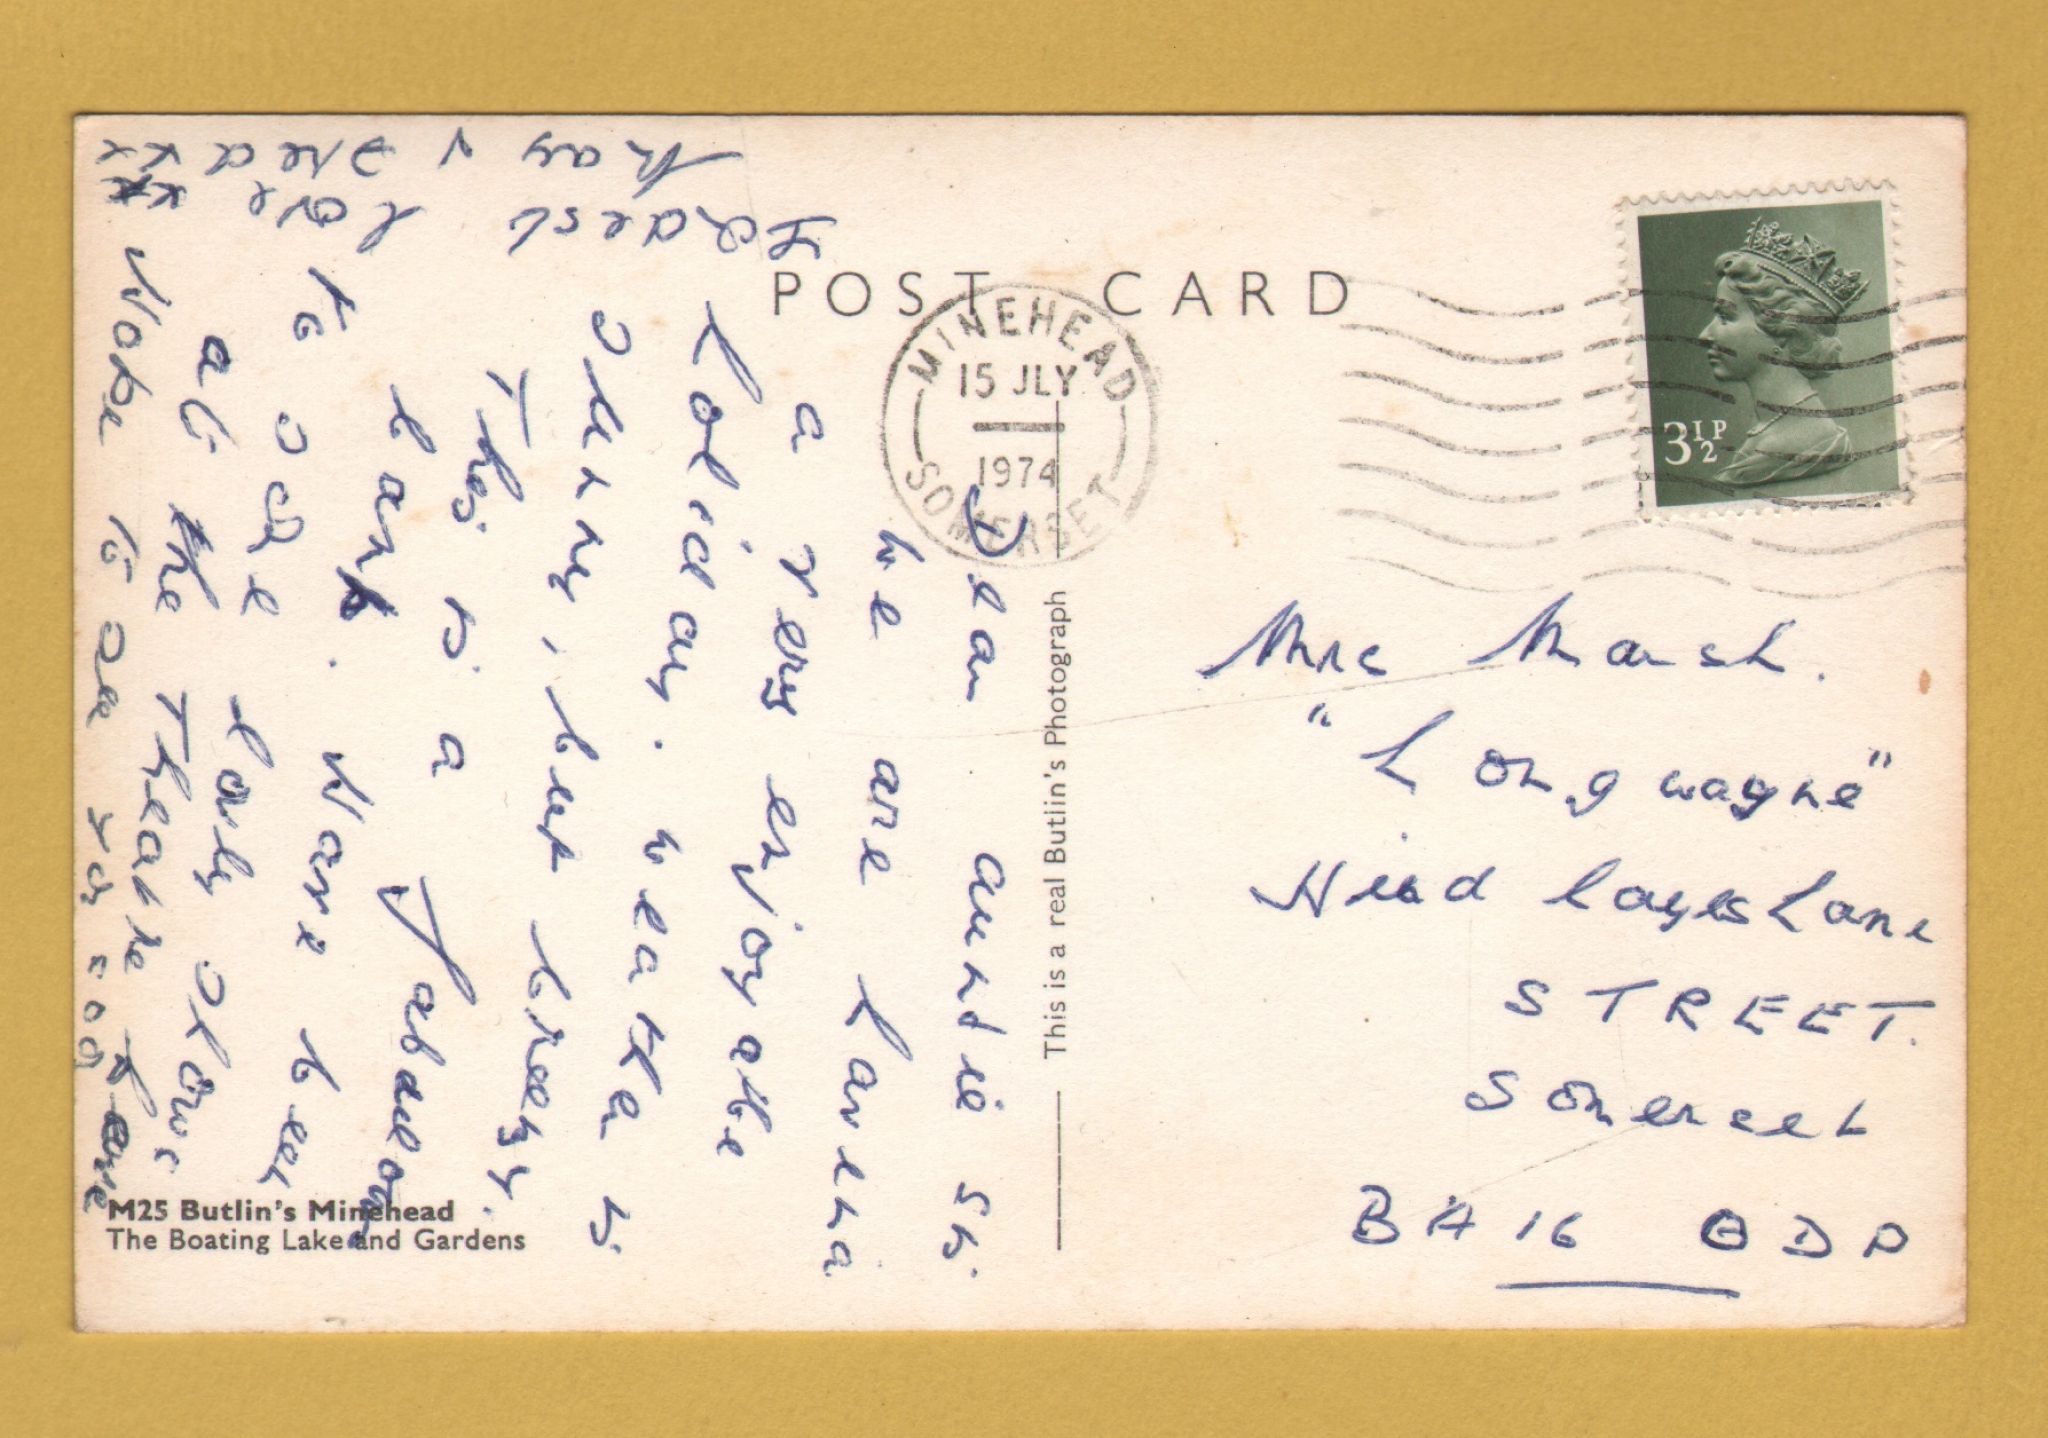 POST CARD
MINEHEAD
15 JLY
1974
SOMERSET
3½P
Dear auntie si.
we are having
a very enjoyable
holiday. weather is
sunny, but breezy.
This is a fabulous
camp. Have been
to see lovely shows
at the Theatre here
Hope to see you soon
Fondest love
May & Fred
xx
xx
This is a real Butlin's Photograph
M25 Butlin's Minehead
The Boating Lake and Gardens
Mrs Marsh.
"Longwayne"
Hind Cayes Lane
STREET.
Somerset
BA16 0DP